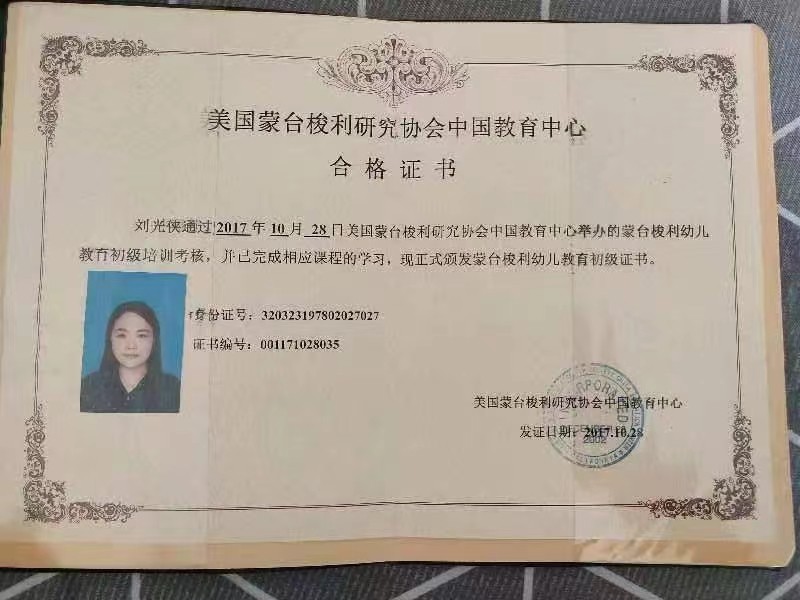 美国蒙台梭利研究协会中国教育中心
合格证书
刘光侠通过 2017 年 10 月 28 日美国蒙台梭利研究协会中国教育中心举办的蒙台梭利幼儿
教育初级培训考核，并已完成相应课程的学习，现正式颁发蒙台梭利幼儿教育初级证书。
身份证号：320323197802027027
证书编号：001171028035
美国蒙台梭利研究协会中国教育中心
发证日期：2017.10.28
INCORPORATED
2002